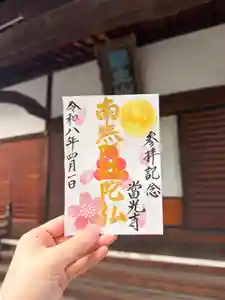 参拝記念
南無阿弥陀仏
當光寺
令和八年四月一日